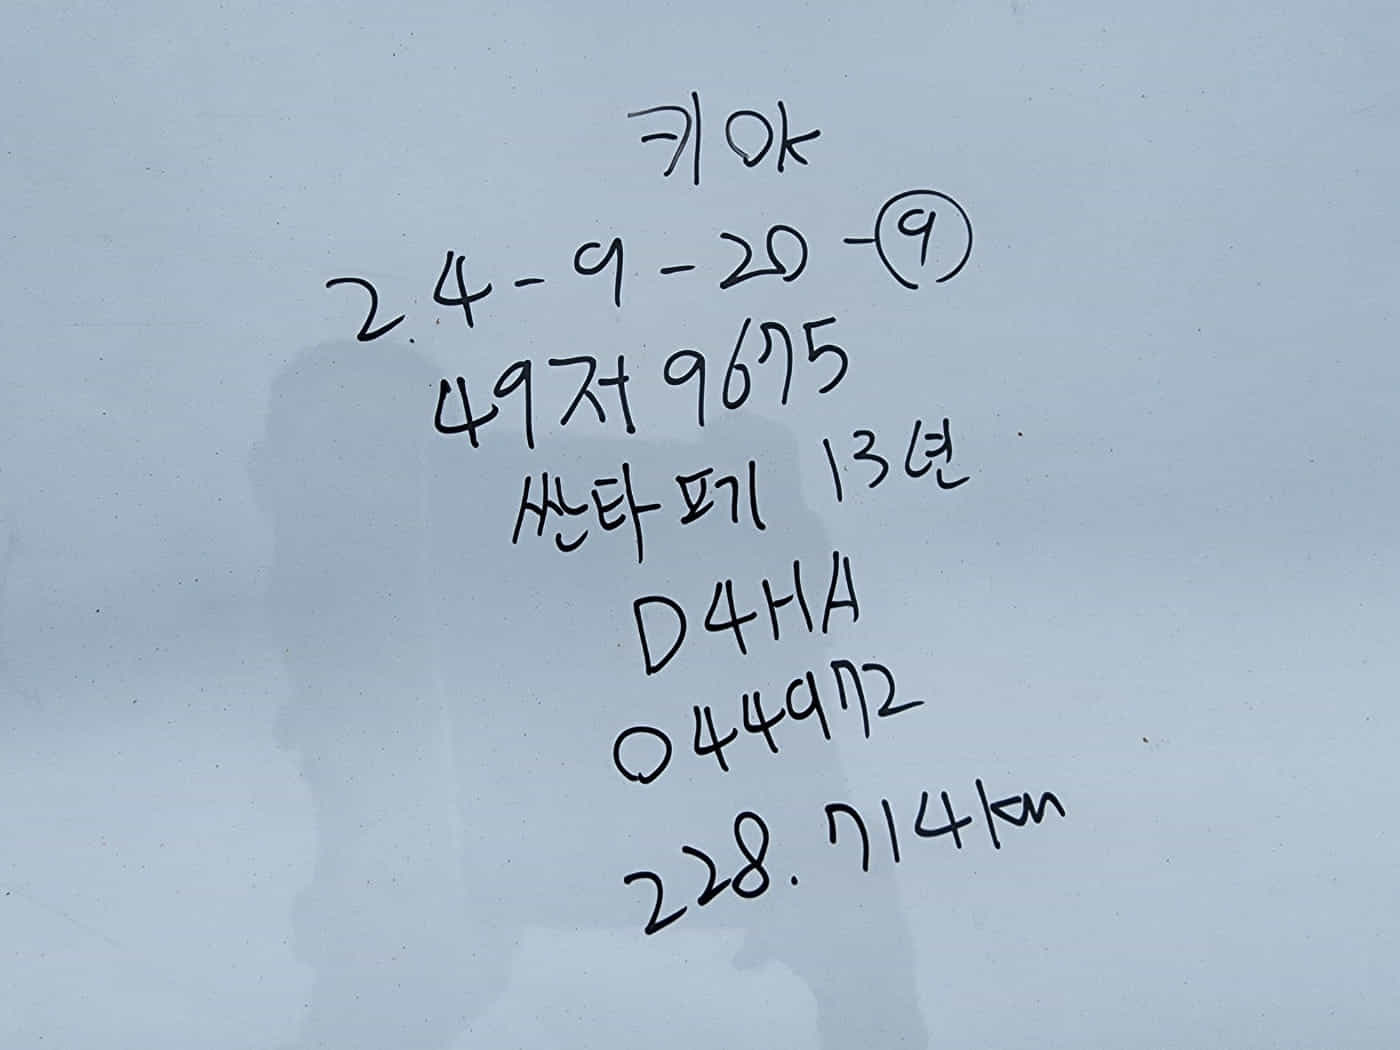 키야
24-9-20-⑨
49저9675
싼타페 13년
D4HA
044972
228.714km